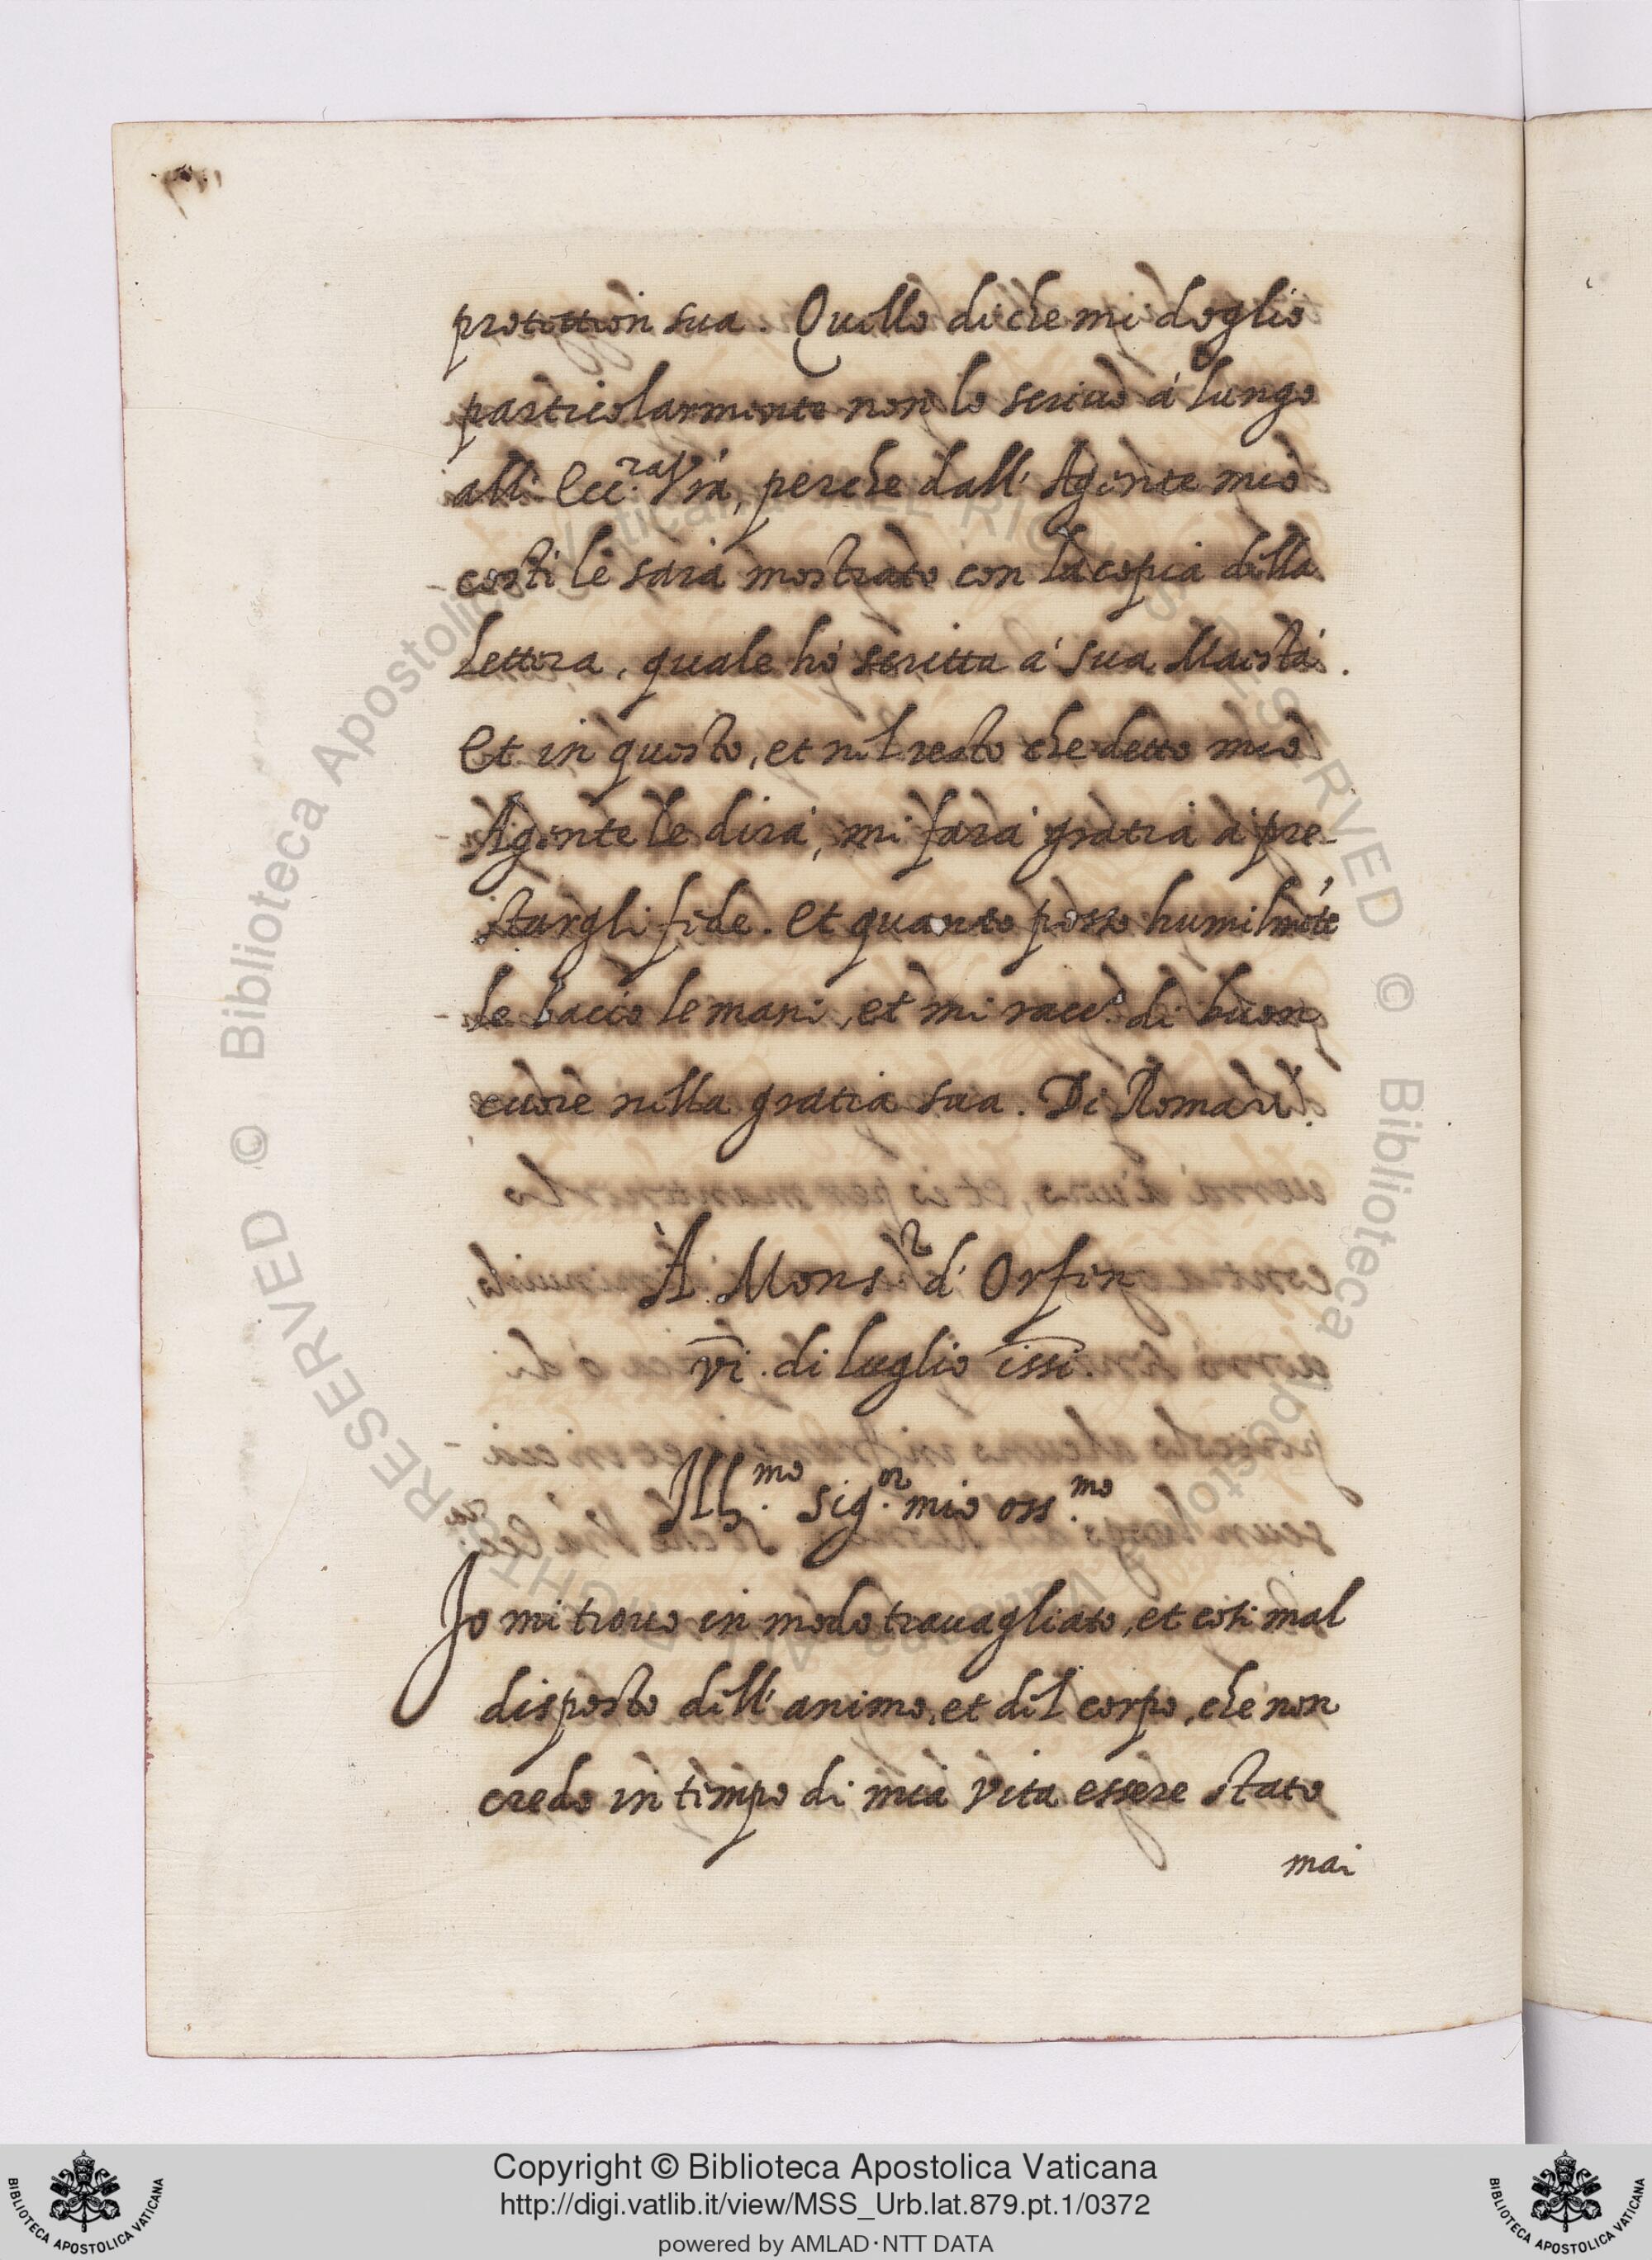 protettion sua. Quello di che mi doglio
particolarmente non lo scrivo à lungo
all' Ecc.ra V'ra, perche dall' Agente mio
costi le sarà mostrato con la copia della
lettera, quale hò scritta a' sua Maestà.
Et in questo, et nel resto che detto mio
Agente le dirà, mi farà gratia a pre-
stargli fede. Et quanto posso humilmẽte
le bacio le mani, et mi racc.o di buon
cuore nella gratia sua. Di Roma
À Mons.r d' Orfen
vi. di luglio 1551.
Ill.mo sig.or mio oss.mo
Io mi trovo in modo travagliato, et così mal
disposto dell' animo, et del corpo, che non
credo in tempo di mia vita essere stato
mai
© Biblioteca Apostolica Vaticana ALL RIGHTS RESERVED © Biblioteca Apostolica Vaticana ALL RIGHTS RESERVED
Copyright © Biblioteca Apostolica Vaticana
http://digi.vatlib.it/view/MSS_Urb.lat.879.pt.1/0372
powered by AMLAD·NTT DATA
BIBLIOTECA APOSTOLICA VATICANA
BIBLIOTECA APOSTOLICA VATICANA